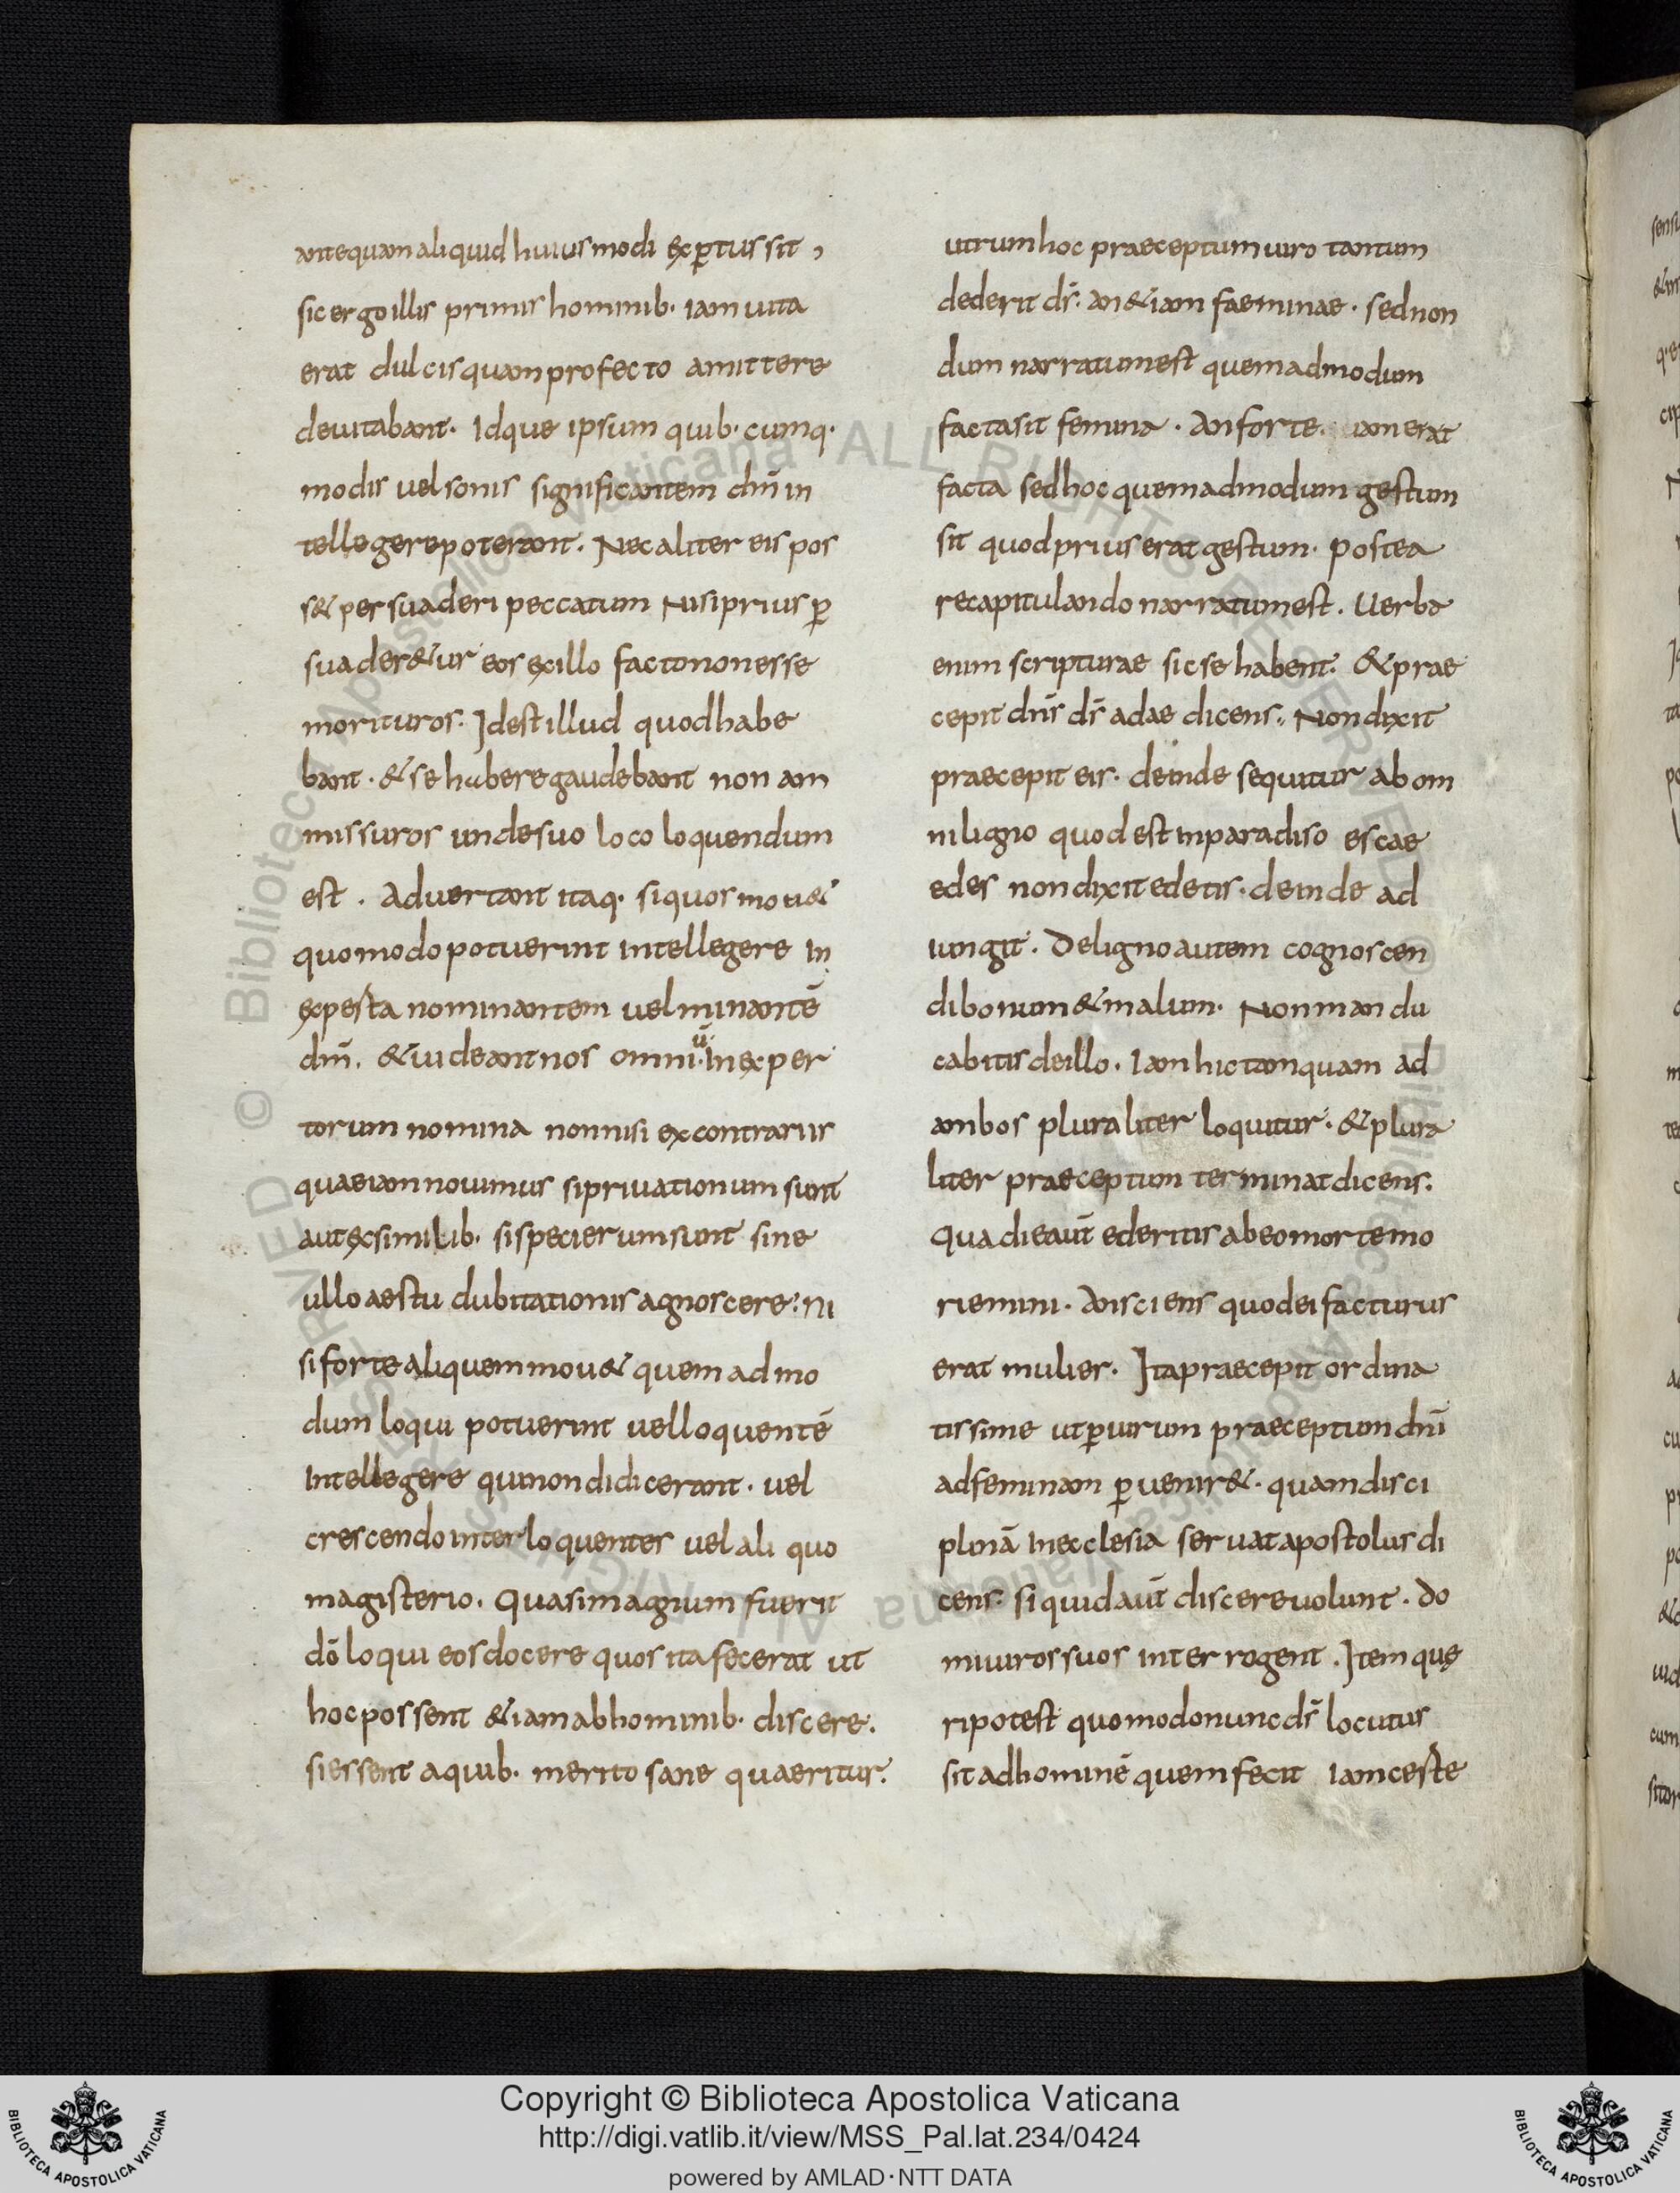 antequam aliquid huiusmodi exꝑtus sit,
sic ergo illis primis hominib· iam uita
erat dulcis quam profecto amittere
deuitabant· Idque ipsum quib·cumq·
modis uel sonis significantem dm̄ in
tellegere poterant. Nec aliter eis pos
s& persuaderi peccatum Nisi prius ꝑ
suader&ur eos ex illo facto non esse
morituros· Id est illud quod habe
bant· & se habere gaudebant non am
missuros unde suo loco loquendum
est. Aduertant itaq· si quos mou&
quomodo potuerint intellegere In
expesta nominantem uel minantē
dm̄. & uideant nos omniū· Inexper
torum nomina nonnisi ex contrariis
quae iam nouimus si priuationum sunt
aut ex similib· si specierum sunt sine
ullo aestu dubitationis agnoscere: Ni
si forte aliquem mou& quemadmo
dum loqui potuerint uel loquentē
Intellegere qui non didicerant· uel
crescendo inter loquentes uel aliquo
magisterio. Quasi magnum fuerit
dō loqui eos docere quos ita fecerat ut
hoc possent &iam ab hominib· discere.
si essent a quib· merito sane quaeritur.
utrum hoc praeceptum uiro tantum
dederit ds̄· an &iam faeminae· sed non
dum narratum est quemadmodum
facta sit femina· An forte· iam erat
facta sed hoc quemadmodum gestum
sit quod prius erat gestum· postea
recapitulando narratum est. Uerba
enim scripturae sic se habent· & prae
cepit dns̄ ds̄ adae dicens·, Non dixit
praecepit eis· deinde sequitur ab om
ni ligno quod est in paradiso escae
edes non dixit edetis· deinde ad
iungit· De ligno autem cognoscen
di bonum & malum· Non mandu
cabitis de illo. Iam hic tamquam ad
ambos pluraliter loquitur· & plura
liter praeceptum terminat dicens:
Qua die aūt ederitis ab eo morte mo
riemini· An sciens quod ei facturus
erat mulier· Ita praecepit ordina
tissime ut ꝑ uirum praeceptum dnī
ad feminam ꝑuenir&· quam disci
plinā In ecclesia seruat apostolus di
cens· si quid aūt discere uolunt· Do
mi uiros suos interrogent. Item quę
ri potest quomodo nunc ds̄ locutus
sit ad hominē quem fecit Iam ceste
© Biblioteca Apostolica Vaticana ALL RIGHTS RESERVED
Copyright © Biblioteca Apostolica Vaticana
http://digi.vatlib.it/view/MSS_Pal.lat.234/0424
powered by AMLAD·NTT DATA
BIBLIOTECA APOSTOLICA VATICANA
BIBLIOTECA APOSTOLICA VATICANA